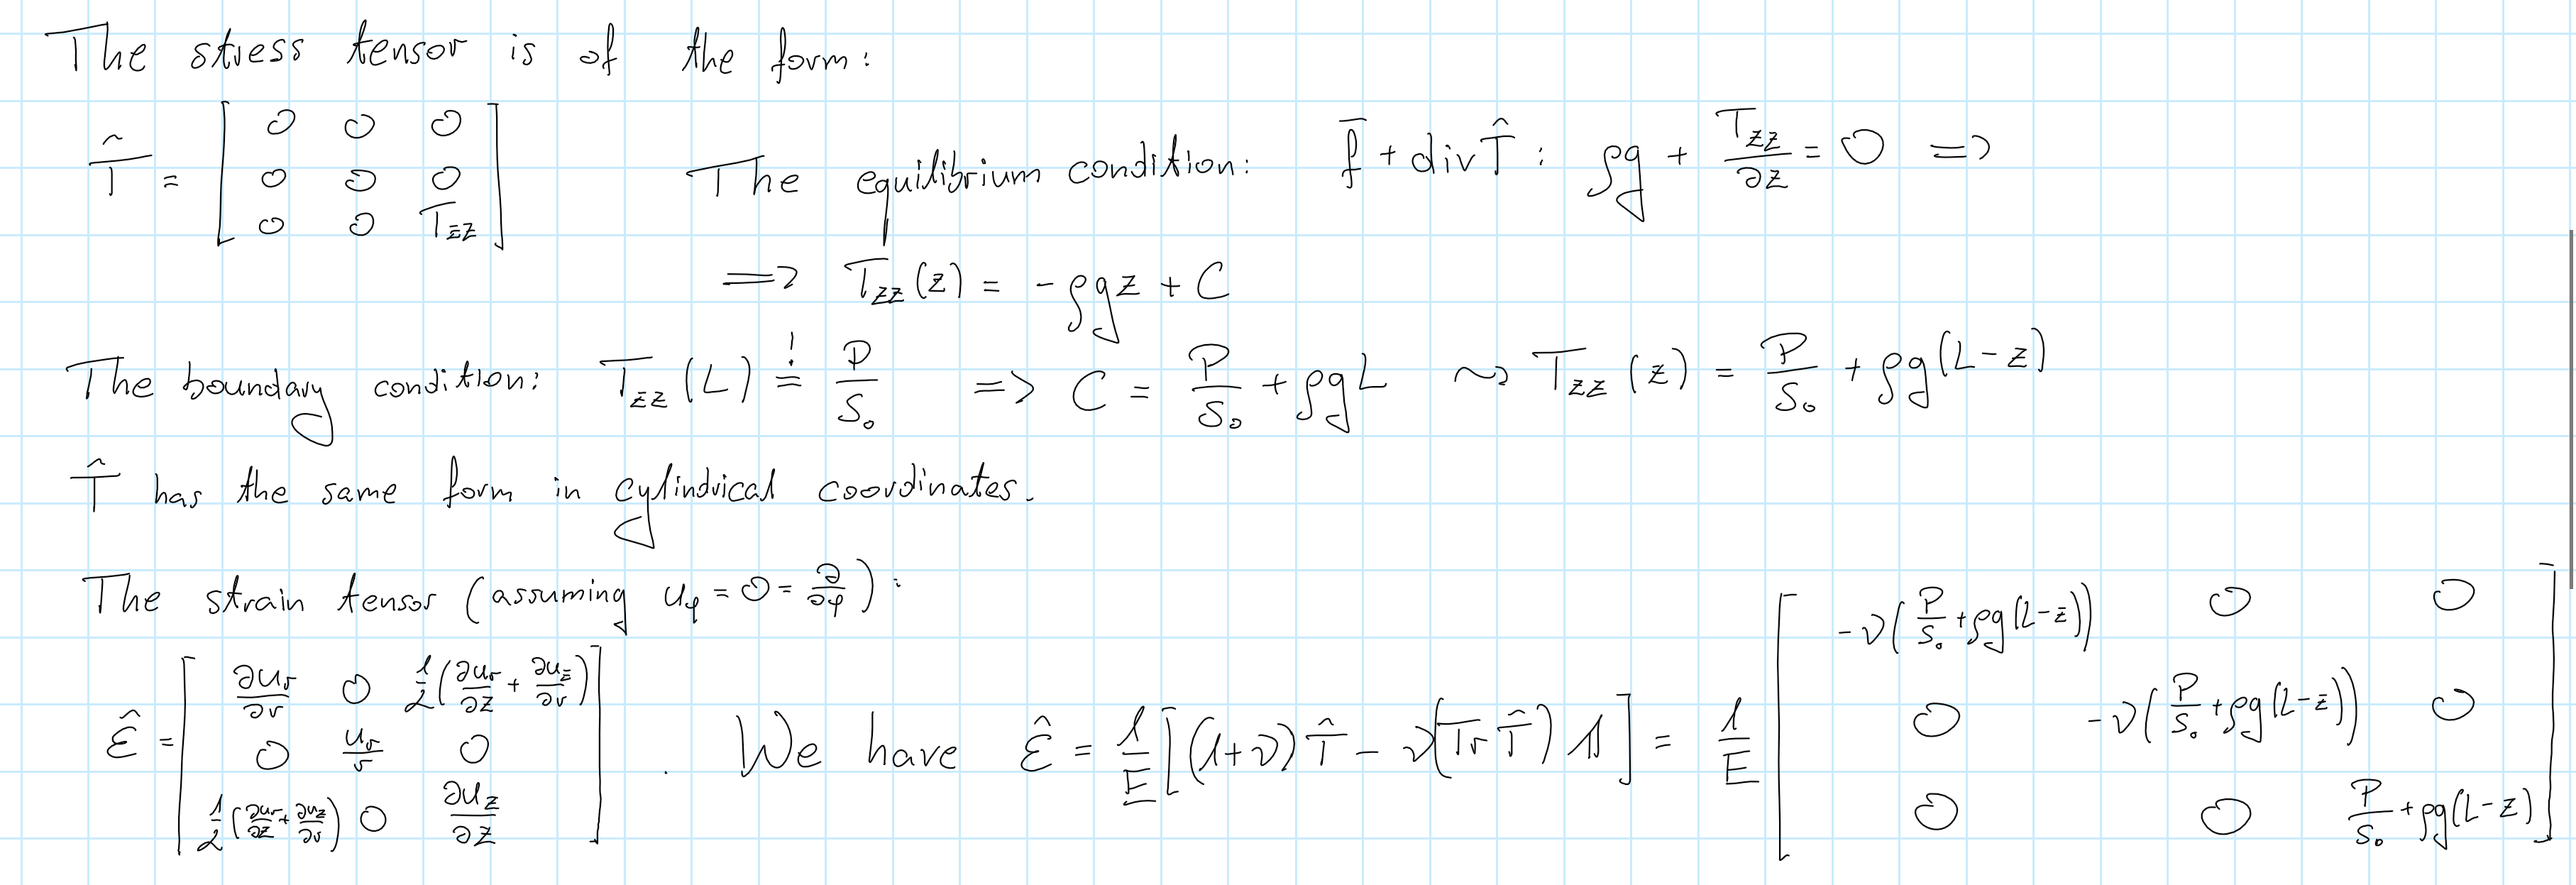 The stress tensor is of the form:
T̂ = [ 0 0 0 ; 0 0 0 ; 0 0 T_zz ] The equilibrium condition: f̄ + div T̂ : ρg + T_zz/∂z = 0 =>
=> T_zz(z) = -ρgz + C
The boundary condition: T_zz(L) =! P/S₀ => C = P/S₀ + ρgL ⇝ T_zz(z) = P/S₀ + ρg(L-z)
T̂ has the same form in cylindrical coordinates.
The strain tensor (assuming u_φ = 0 = ∂/∂φ):
ε̂ = [ ∂u_r/∂r 0 1/2(∂u_r/∂z + ∂u_z/∂r) ; 0 u_r/r 0 ; 1/2(∂u_r/∂z + ∂u_z/∂r) 0 ∂u_z/∂z ] . We have ε̂ = 1/E [(1+ν)T̂ - ν(Tr T̂) 𝟙] = 1/E [ -ν(P/S₀ + ρg(L-z)) 0 0 ; 0 -ν(P/S₀ + ρg(L-z)) 0 ; 0 0 P/S₀ + ρg(L-z) ]